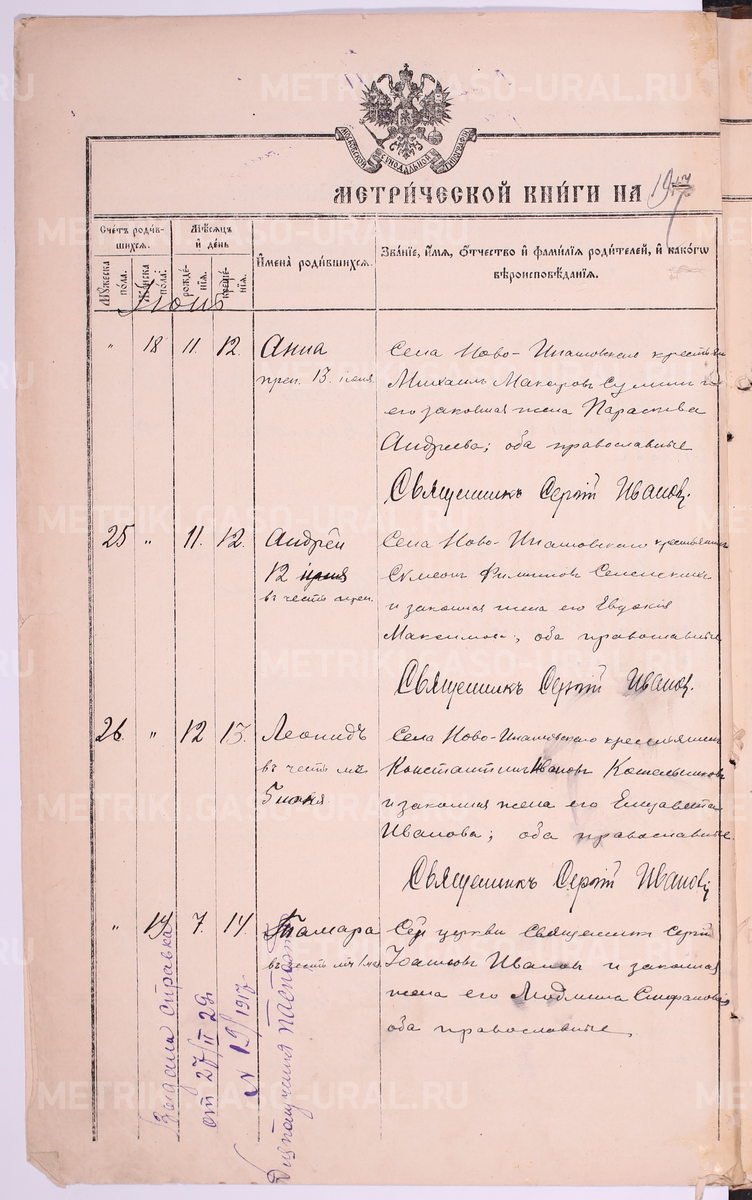 МОСКОВСКОЙ СѴНОДАЛЬНОЙ ТИПОГРАФІИ
МЕТРИ́ЧЕСКОЙ КНИ́ГИ НА 1917
Сче́тъ роди́в-
шихся.
Мꙋ́жеска
пола.
Же́нска
пола.
Мѣ́сяцъ
и҆ де́нь
рожде́-
нїя.
креще́-
нїя.
И҆мена̀ роди́вшихся.
Зва́нїе, и҆́мя, ѻ҆́тчество и҆ фами́лїя роди́телей, и҆ како́гѡ
вѣроисповѣ́данїя.
Іюнь
" 18 11. 12. Анна
преп. 13. іюня
Села Ново-Ипатовскаго крестьянин
Михаилъ Макаровъ и
его законная жена Параскева
Андреева; оба православные
Священникъ Сергій Ивановъ.
25 " 11. 12. Андрей
12 іюня
въ честь преп.
Села Ново-Ипатовскаго крестьянинъ
Сѵмеонъ Филиппов
и законная жена его Евдокія
Максимова, оба православные
Священникъ Сергій Ивановъ.
26. " 12 13. Леонидъ
въ честь мч.
5 іюня
Села Ново-Ипатовскаго крестьянинъ
Константинъ Ивановъ Котельниковъ
и законная жена его Елизавета
Иванова; оба православные.
Священникъ Сергій Ивановъ
" 19 7. 14 Тамара
въ честь
Сей церкви священникъ Сергій
Іоанновъ Ивановъ и законная
жена его Людмила Стефановна
оба православные
Выдана справка
от 27/II 29
N 19/1917
Для получения паспорта
METRIKI.GASO-URAL.RU